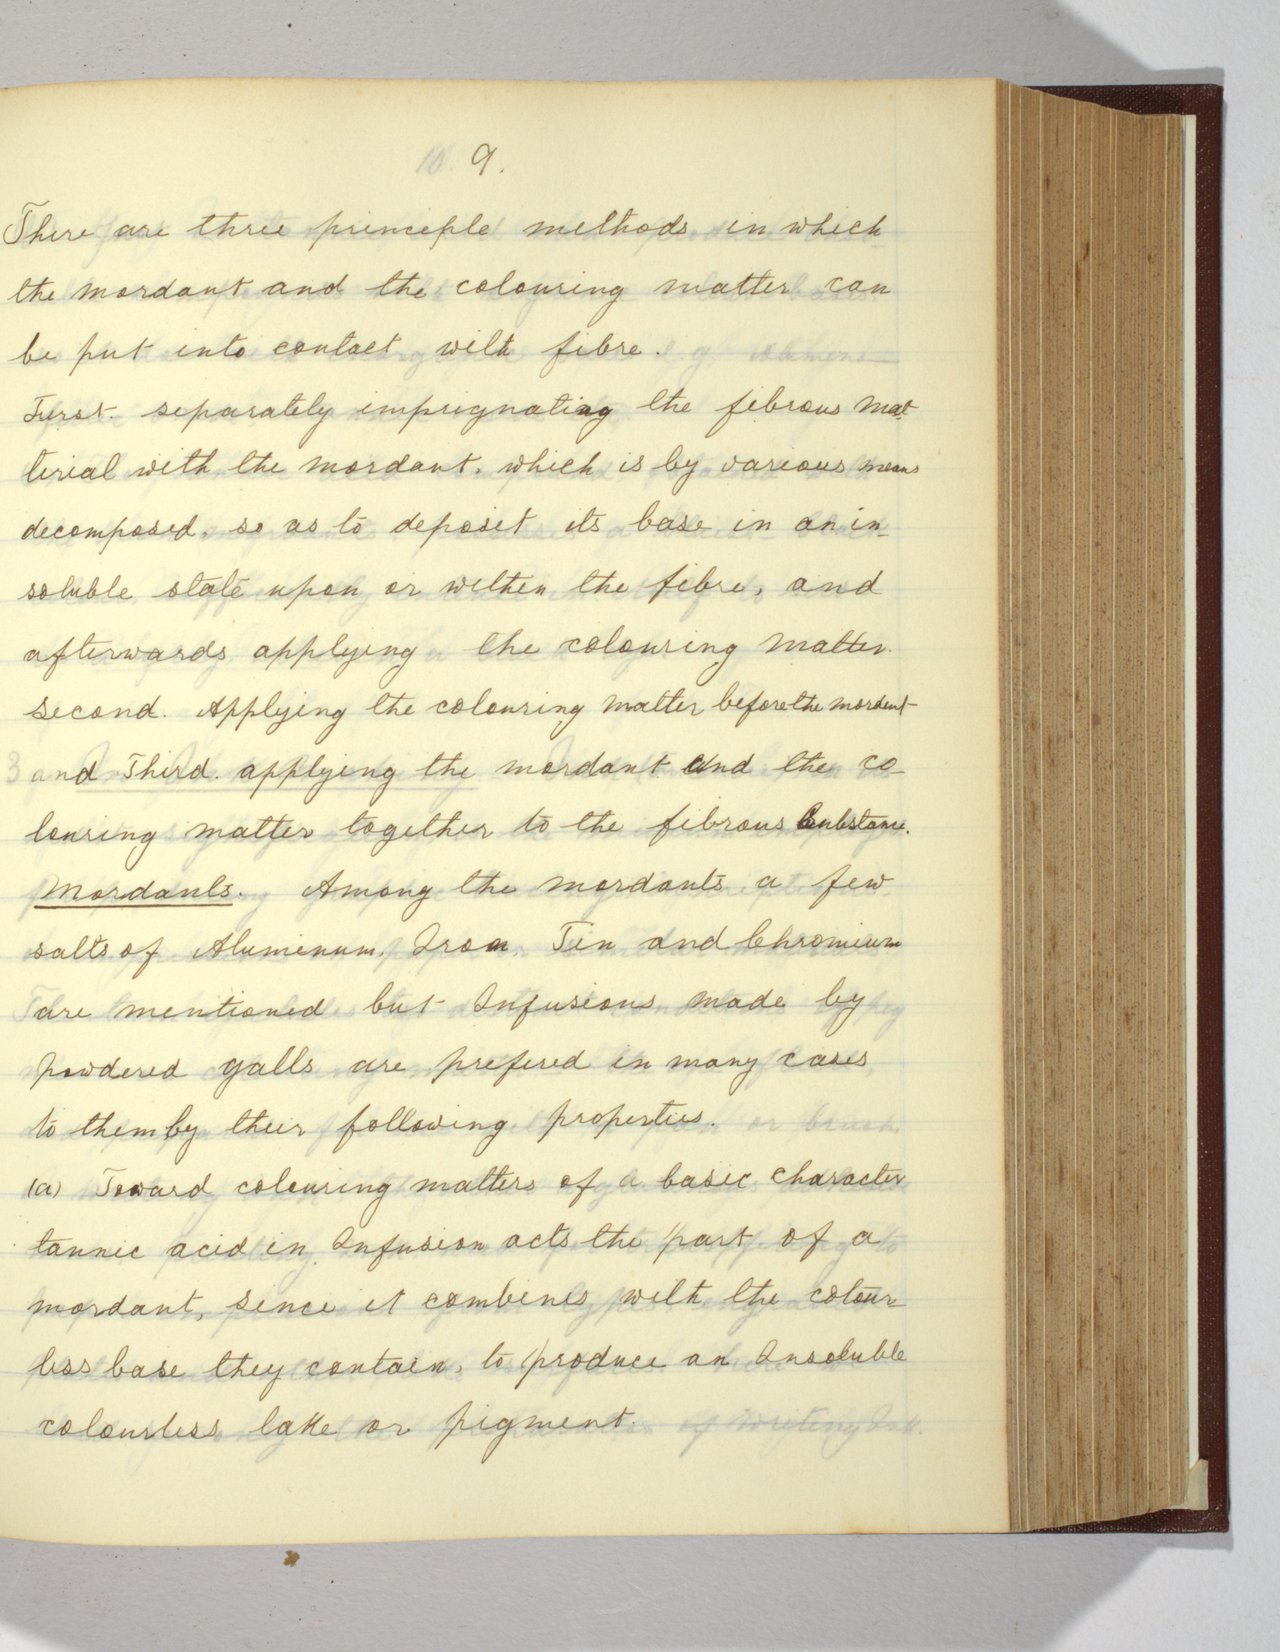 9.
There are three principle methods in which
the mordant and the colouring matter can
be put into contact with fibre.
First. separately imprignating the fibrous mat
terial with the mordant. which is by various means
decomposed. so as to deposit its base in an in-
soluble state upon or within the fibre, and
afterwards applying the colouring matter.
second. Applying the colouring matter before the mordent
and Third. applying the mordant and the co-
louring matter together to the fibrous Substance.
Mordants. Among the mordants a few
salts of Aluminum. Iron. Tin and Chromium
are mentioned but Infusions made by
powdered galls are prefered in many cases
to them by their following properties.
(a) Toward colouring matters of a basic character
tannic acid in Infusion acts the part of a
mordant, since it combines with the colour-
less base they contain, to produce an Insoluble
colourless lake or pigment.